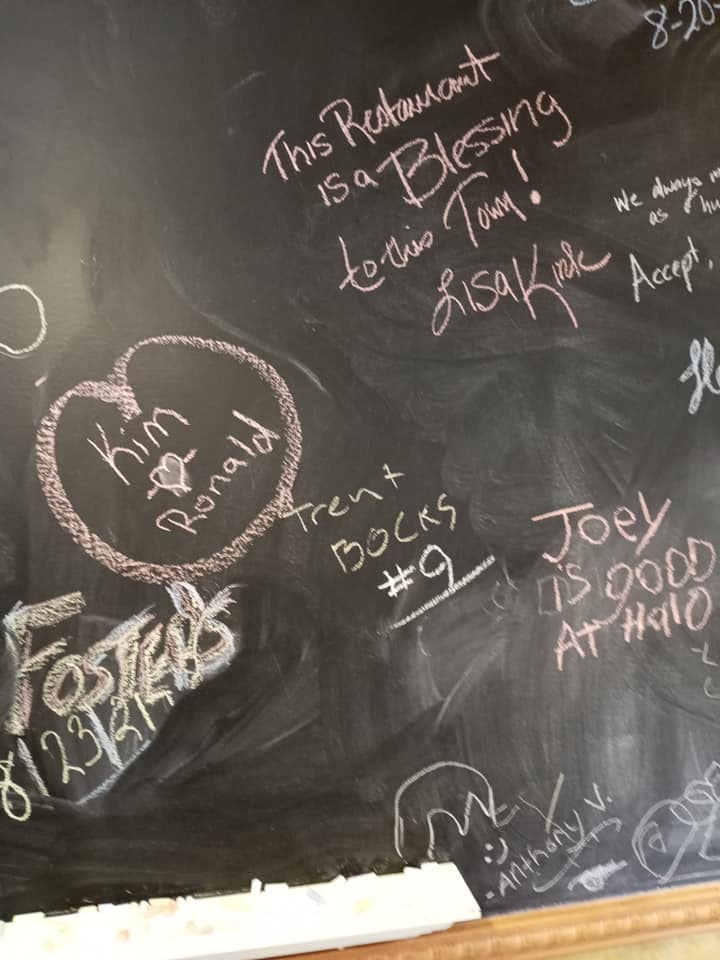 8-20-
This Restaurant
is a Blessing
to this Town!
Lisa
We always
as
Accept,
Kim
Ronald
Trent
BOCKS
#9
JOEY
IS GOOD
AT Halo
FOSTERS
8/23/21
:)
-Anthony V.